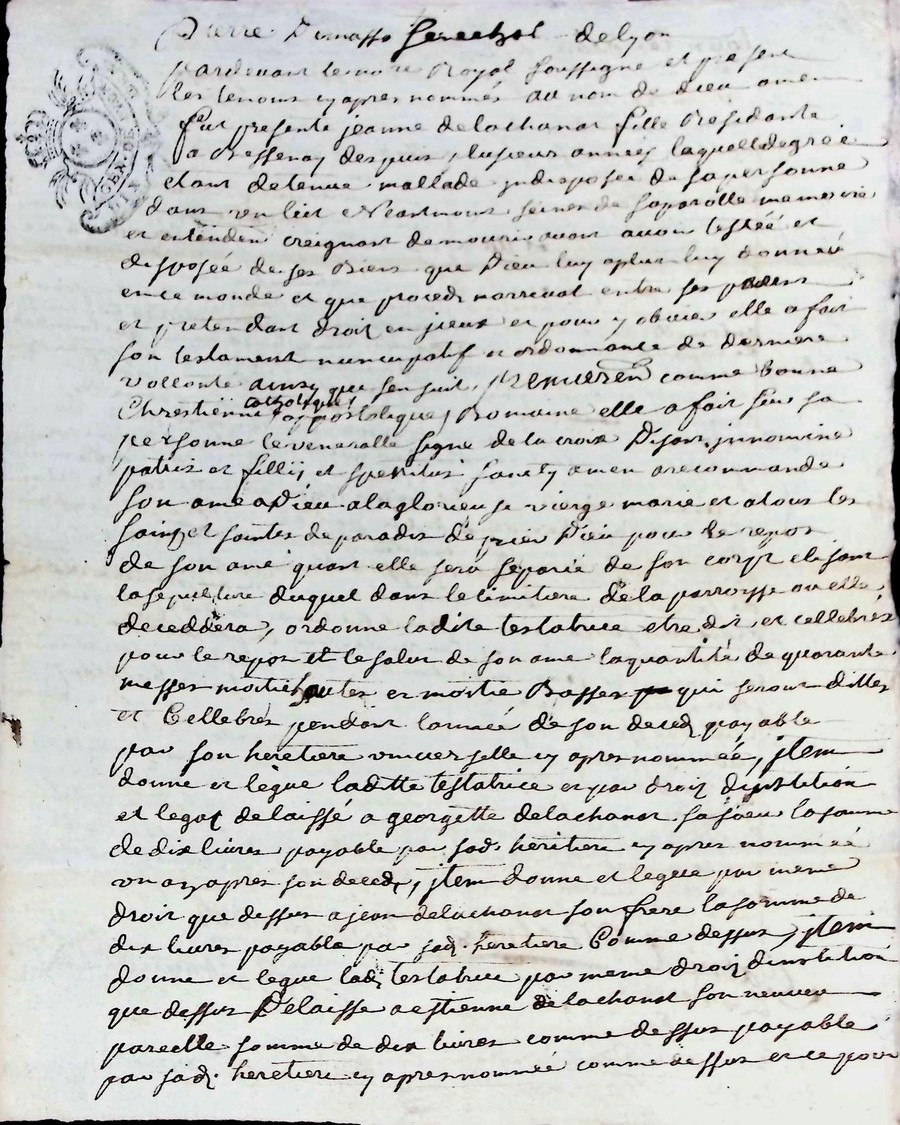 Pierre Dimasso Senechal de lyon
pardevant le notre Royal soussigne et present
les temoins cy apres nommés au nom de dieu amen
fut presente jeanne delachanat fille Residante
a Bessenay despuis plusieurs années laquelle de gré
etant detenue mallade indisposée de sa personne
dans un lict Neantmoins seine de sa parolle memoire
et entendem creignant de mourir avant avoir testéé et
disposée de ses Biens que Dieu luy a plut luy donner
en ce monde et que proces n'arrivat entre ses parens
et pretendant droit en iceux et pour y obvier elle a fait
son testament nuncupatif et ordonnance de derniere
vollonté ainsy que sensuit, Premierem comme bonne
Chrestienne catholique appostolique Romaine elle a fait sur sa
personne le venerable signe de la croix Disant in nomine
patris et fillij et speritus sancty amen a recommandé
son ame a Dieu a la glorieuse vierge marie et a tous les
saints et saintes de paradis de prier Dieu pour le repos
de son ame quant elle sera separée de son corps elisant
la sepulture duquel dans le cimitiere de la parroisse ou elle
deceddera, ordonne ladite testatrice etre dit et cellebrés
pour le repos et le salut de son ame la quantité de quarante
messes moitie hautes et moitie Basses qui seront dittes
et Cellebrés pendant l'année de son deced payable
par son heretiere universelle cy apres nommée, jtem
donne et legue laditte testatrice et par droit d'institution
et legat delaissé a georgette delachanat sa soeur la somme
de dix livres payable par sad. heritiere cy apres nommée
un an apres son deced, jtem donne et legue par meme
droit que dessus a jean delachanat son frere la somme de
dix livres payable par sad. heretiere Comme dessus, jtem
donne et legue lad. testatrice par meme droit d'institution
que dessus Delaisse a estienne delachanat son neuveu
pareille somme de dix livres comme dessus payable
par sad. heretiere cy apres nommée comme dessus et ce pour